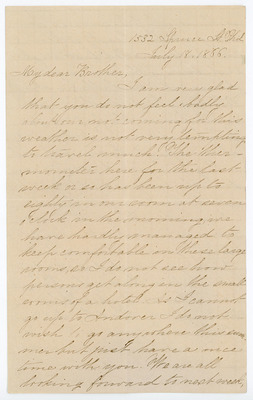 1532 Spruce St. Phil
July 18. 1888.
My dear Brother,
I am very glad
that you do not feel badly
about our not coming for this
weather is not very tempting
to travel much. The ther-
mometer here for the last
week or so has been up to
eighty in our room at seven
o'clock in the morning, we
have hardly managed to
keep comfortable in these large
rooms, so I do not see how
persons get along in the small
rooms of a hotel. As I cannot
go up to Andover I do not
wish to go anywhere this sum-
mer but just have a nice
time with you. We are all
looking forward to next week,